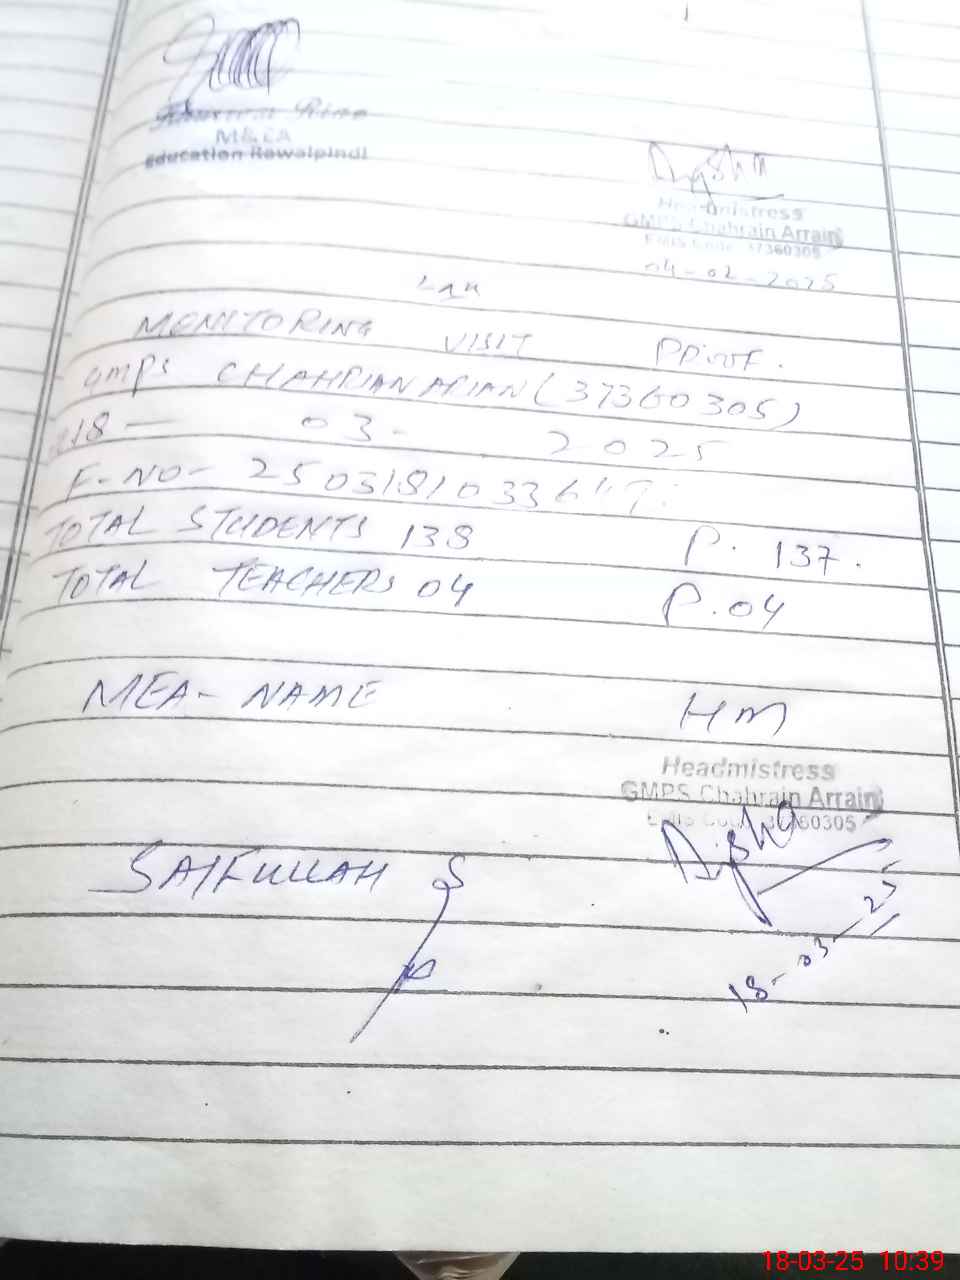 M&EA
Education Rawalpindi
Aysha
Headmistress
GMPS Chahrain Arrain
EMIS Code 37360305
04-02-2025
MENITORING VISIT PROOF.
GMPS CHAHRIAN ARIAN (37360305)
18- 03- 2025
F-NO-
TOTAL STUDENTS 138 P. 137.
TOTAL TEACHERS 04 P. 04
MEA- NAME HM
Headmistress
GMPS Chahrain Arrain
EMIS Code 37360305
SAIFULLAH
Aysha
18-03-25
18-03-25 10:39